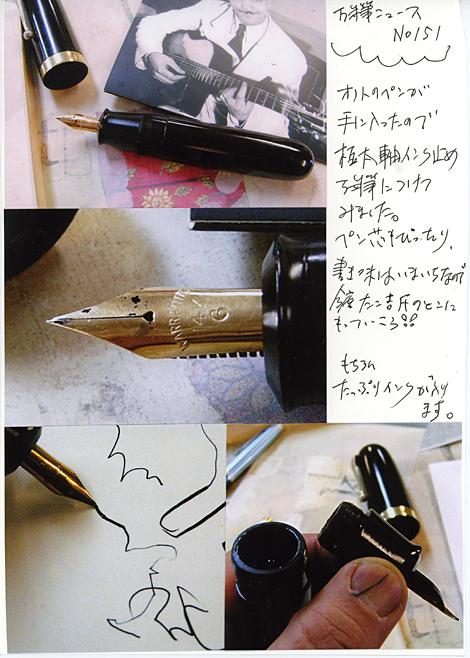 万年筆ニュース
No151
オノトのペンが
手に入ったので
極太軸インク止め
万年筆につけて
みました。
ペン芯もぴったり、
書き味はいまいちなので
もっていこう
もちろん
たっぷりインクが入り
ます。
WARRANTED
14
6